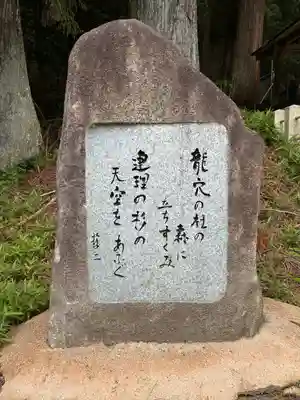 龍穴の杜の
森に
立ちすくみ
連理の杉の
天空をあふぐ